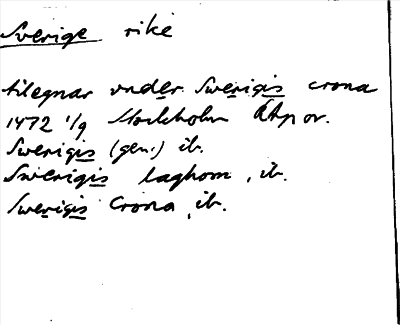 Sverige rike
tilegnar vnder Swerigis crona
1472 1/9 Stockholm Åtp or.
Swerigis (gen.) ib.
Swerigis laghom, ib.
Swerigis Crona, ib.